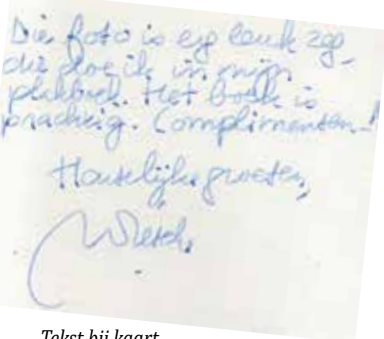 Die foto is erg leuk zeg,
die doe ik in mijn
plakboek. Het boek is
prachtig. Complimenten!
Hartelijke groeten,
Tekst bij kaart